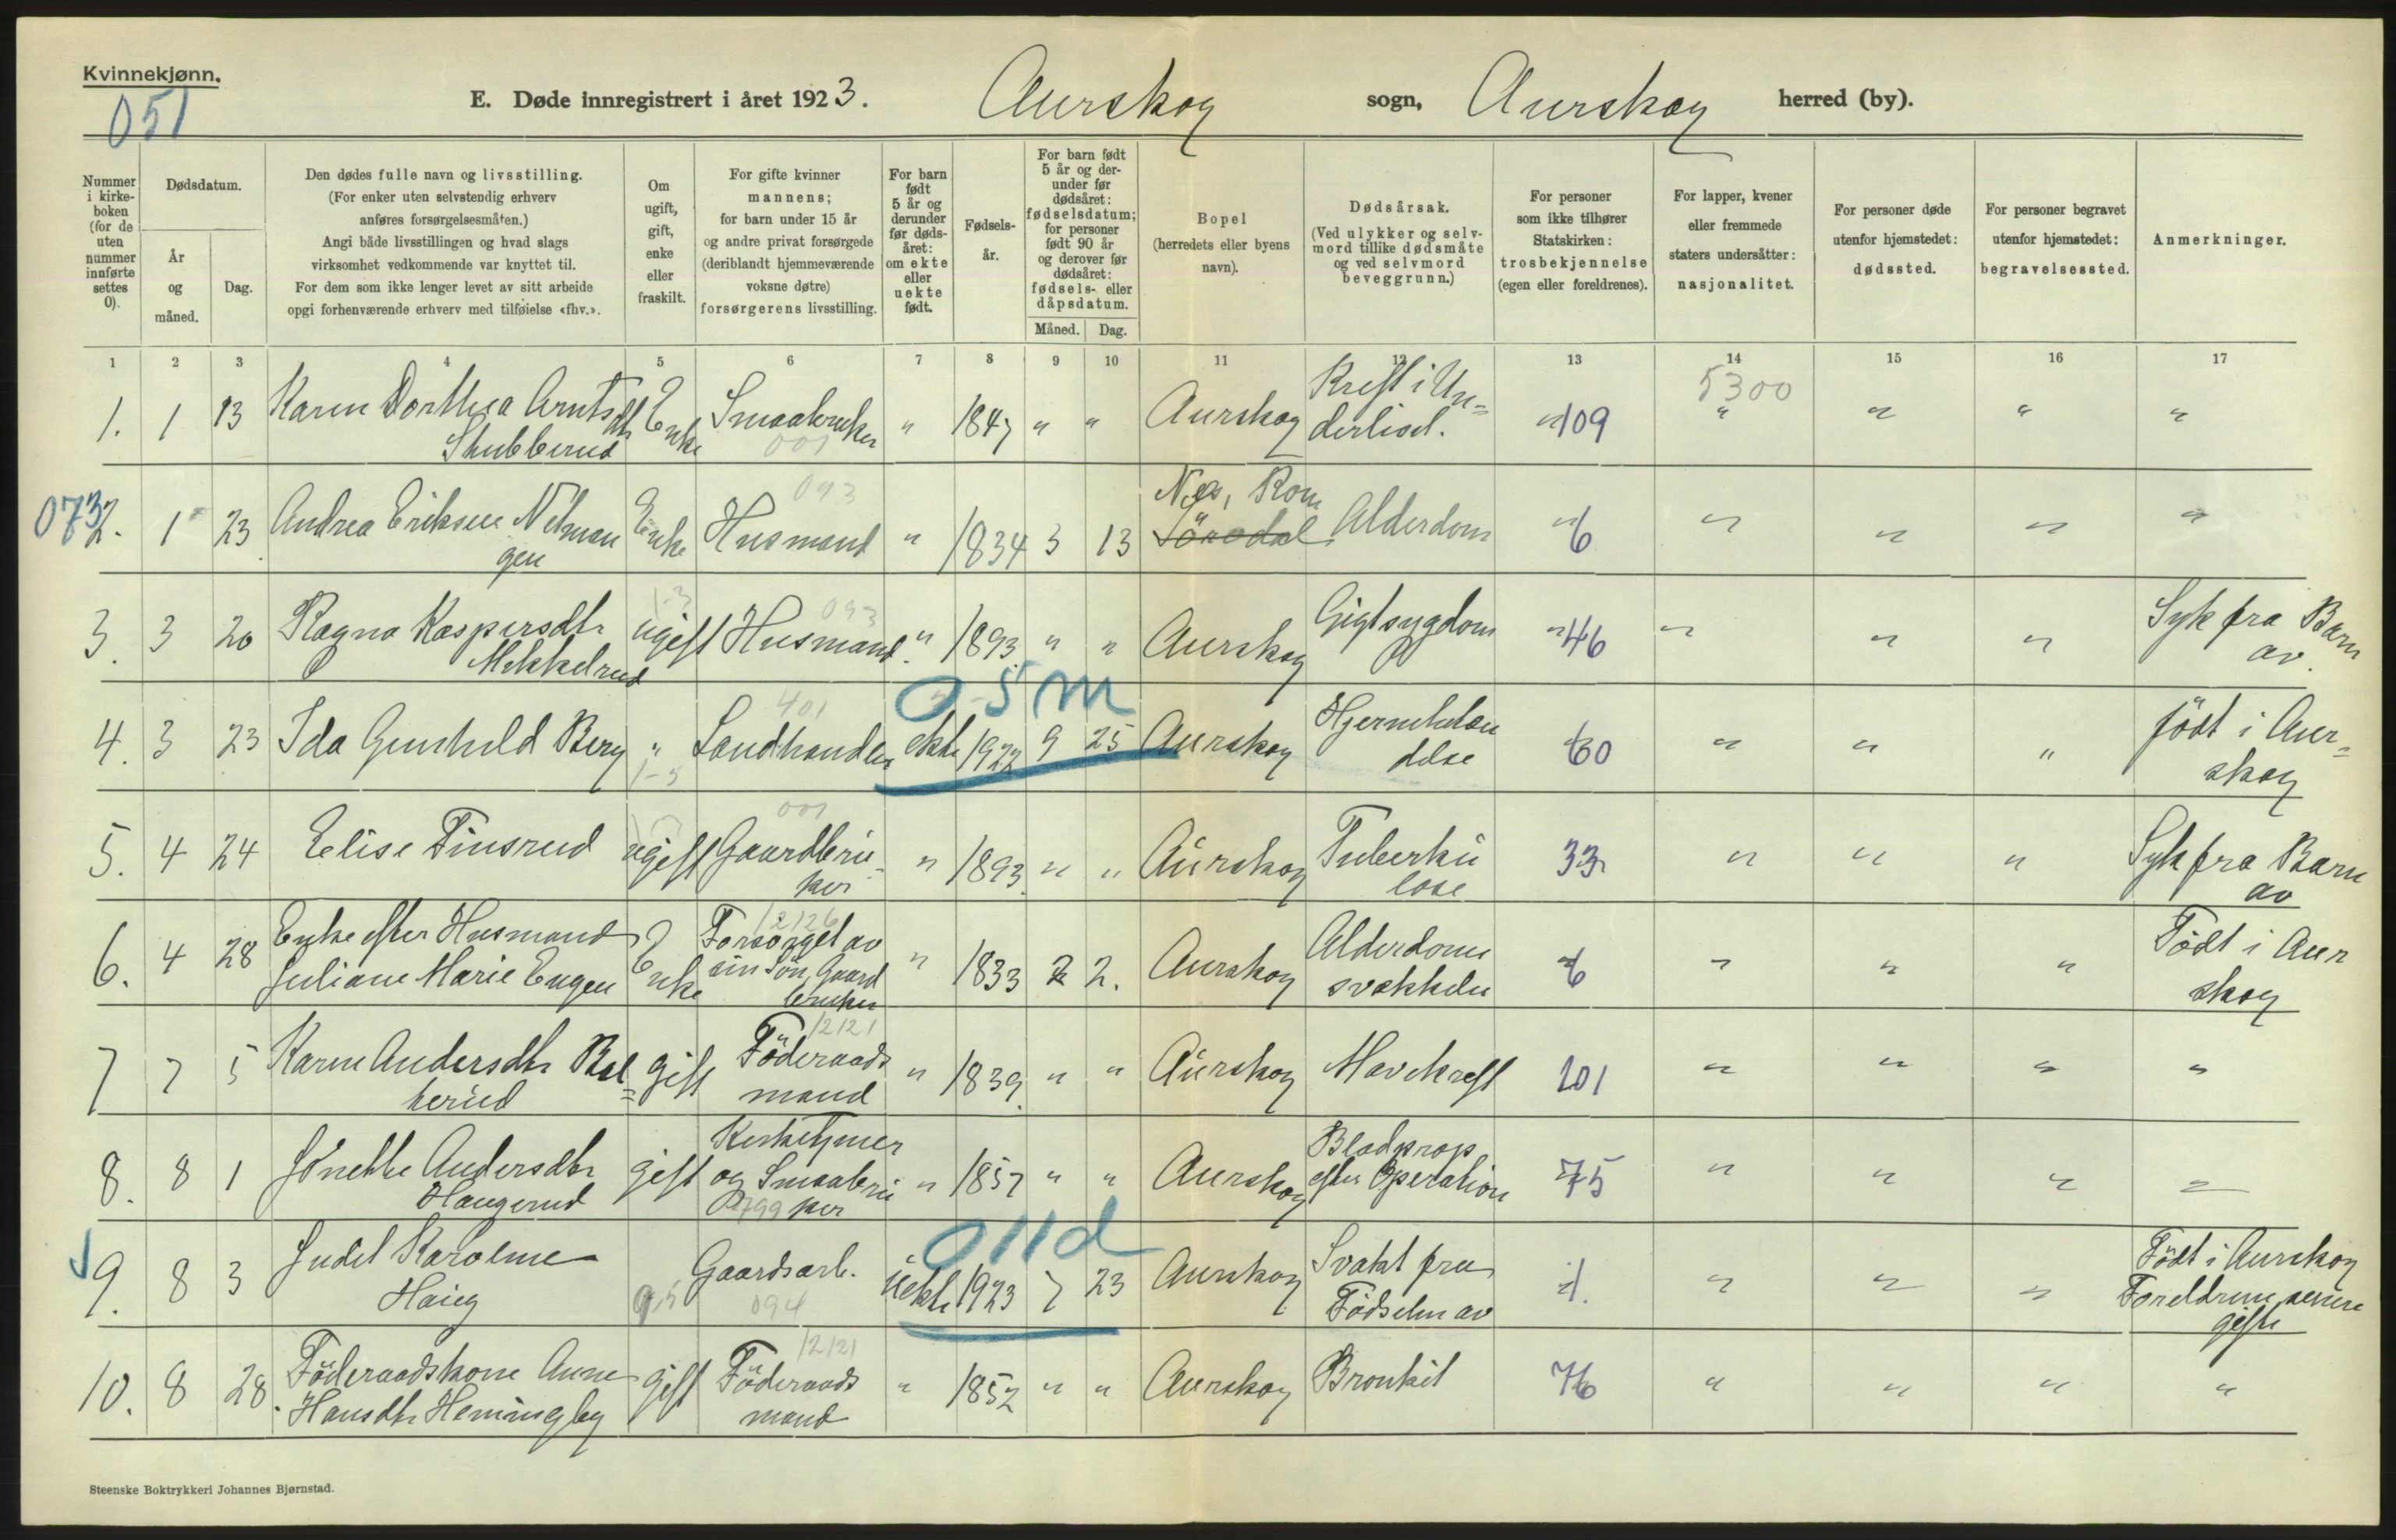 Kvinnekjønn.
051
E. Døde innregistrert i året 1923. Aurskog sogn, Aurskog herred (by).
Nummer i kirkeboken (for de uten nummer innførte settes 0).
Dødsdatum.
År og måned.
Dag.
Den dødes fulle navn og livsstilling.
(For enker uten selvstendig erhverv anføres forsørgelsesmåten.)
Angi både livsstillingen og hvad slags virksomhet vedkommende var knyttet til.
For dem som ikke lenger levet av sitt arbeide opgi forhenværende erhverv med tilføielse «fhv.».
Om ugift, gift, enke eller fraskilt.
For gifte kvinner mannens; for barn under 15 år og andre privat forsørgede (deriblandt hjemmeværende voksne døtre) forsørgerens livsstilling.
For barn født 5 år og derunder før dødsåret: om ekte eller uekte født.
Fødselsår.
For barn født 5 år og derunder før dødsåret: fødselsdatum; for personer født 90 år og derover før dødsåret: fødsels- eller dåpsdatum.
Måned. Dag.
Bopel (herredets eller byens navn).
Dødsårsak.
(Ved ulykker og selvmord tillike dødsmåte og ved selvmord beveggrunn.)
For personer som ikke tilhører Statskirken: trosbekjennelse (egen eller foreldrenes).
For lapper, kvener eller fremmede staters undersåtter: nasjonalitet.
For personer døde utenfor hjemstedet: dødssted.
For personer begravet utenfor hjemstedet: begravelsessted.
Anmerkninger.
1 2 3 4 5 6 7 8 9 10 11 12 13 14 15 16 17
5300
1. 1 13 Karen Dorthea Arntsdtr Stubberud Enke Smaabruker 001 " 1847 " " Aurskog Kreft i Underlivet. 109 " " " "
073
2. 1 23 Andrea Eriksen Nitmangen Enke Husmand 093 " 1834 3 13 Nes, Rom Alderdom 6 " " " "
3. 3 20 Ragna Kaspersdtr Mikkelrud ugift Husmand 093 " 1893 " " Aurskog Gigtsygdom 46 " " " Syk fra Barn av.
0-5m
4. 3 23 Ida Gunhild Berg " 1-5 Landhandler 401 ekte 1922 9 25 Aurskog Hjernebetændelse 60 " " " født i Aurskog
5. 4 24 Elise Finsrud ugift Gaardbruker 001 " 1893 " " Aurskog Tuberkulose 33 " " " Syk fra Barn av
6. 4 28 Enke efter Husmand Juliane Marie Engen Enke 12126 Forsørget av sin Søn, Gaardbruker " 1833 2 2. Aurskog Alderdomssvækkelse 6 " " " Født i Aurskog
7 7 5 Karen Andersdtr Balkerud gift 12121 Föderaadsmand " 1839 " " Aurskog Mavekreft 101 " " " "
8. 8 1 Jönette Andersdtr Haugerud gift Kirketjener og Smaabruker 799 " 1857 " " Aurskog Blodprop efter Operation 75 " " " "
011d
9. 8 3 Judit Karoline Haug Gaardsarb. 094 uekte 1923 7 23 Aurskog Svakt fra Fødselen av 1. " " " Født i Aurskog Foreldrene senere gifte
10. 8 28. Föderaadskone Anne Hansdtr Hemingby gift 12121 Föderaadsmand " 1852 " " Aurskog Bronkit 76 " " " "
Steenske Boktrykkeri Johannes Bjørnstad.